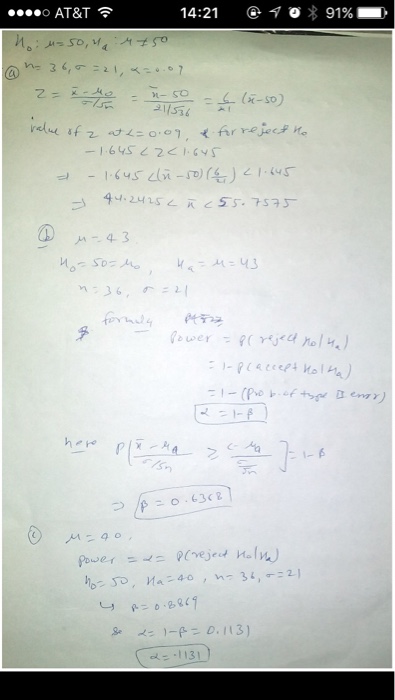 AT&T 14:21 91%
H₀: μ=50, Hₐ: μ≠50
(a) n=36, σ=21, α=0.07
Z = (x̄-μ₀)/(σ/√n) = (x̄-50)/(21/√36) = 6/21 (x̄-50)
value of z at α=0.07, & for reject H₀
-1.645 < Z < 1.645
⇒ -1.645 < (x̄-50)(6/21) < 1.645
⇒ 44.2425 < x̄ < 55.7575
(b) μ=43
H₀=50=μ₀, Hₐ=μ=43
n=36, σ=21
formula
Power = P(reject H₀|Hₐ)
= 1-P(accept H₀|Hₐ)
= 1-(Prob. of type II error)
α = 1-β
here P[(x̄-μₐ)/(σ/√n) ≥ (c-μₐ)/(σ/√n)] = 1-β
⇒ β = 0.6368
(c) μ=40,
Power = α = P(reject H₀|Hₐ)
H₀=50, Hₐ=40, n=36, σ=21
↳ β=0.8869
& α=1-β=0.1131
α=.1131